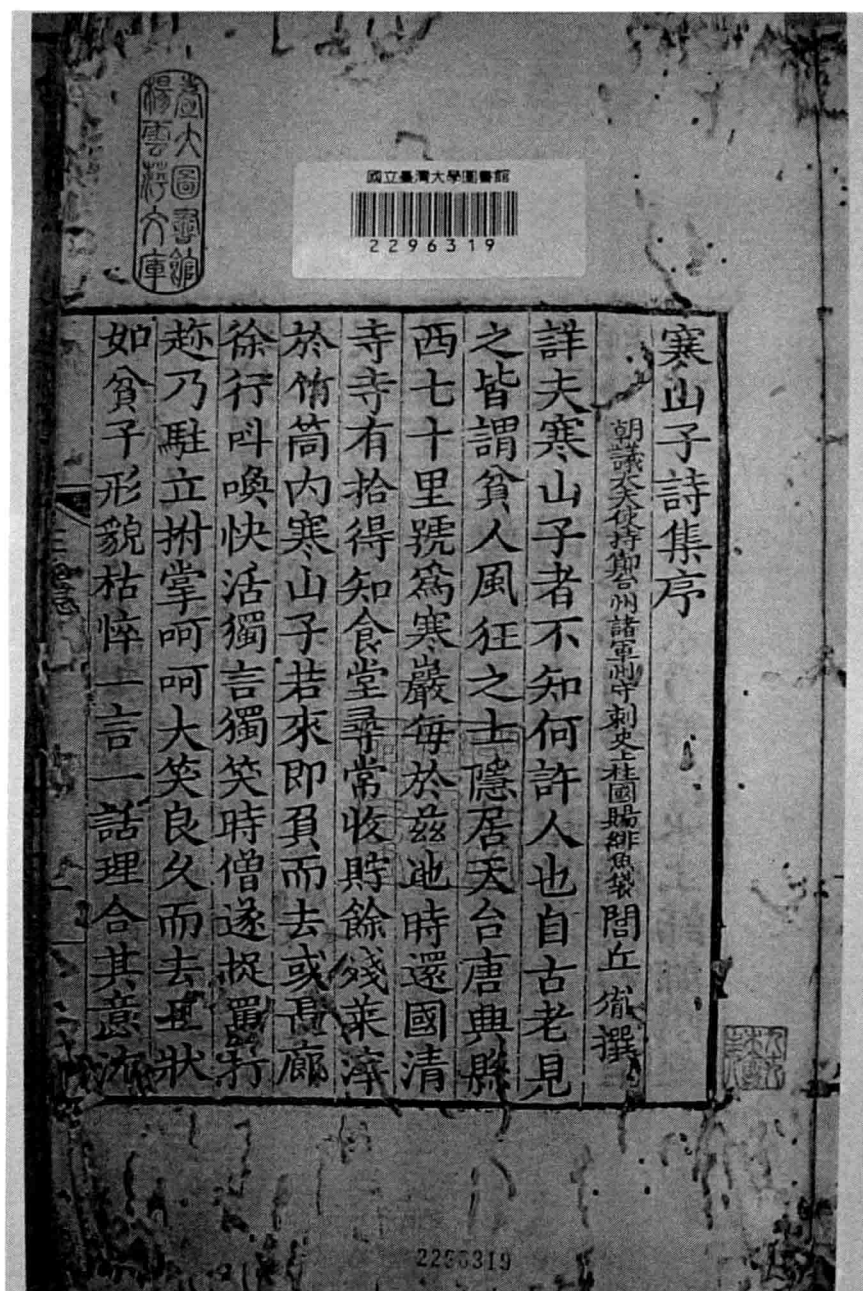 臺大圖書館
楊雲萍文庫
國立臺灣大學圖書館
2296319
寒山子詩集序
朝議大夫使持節台州諸軍州守刺史上柱國賜緋魚袋閭丘胤撰
詳夫寒山子者不知何許人也自古老見
之皆謂貧人風狂之士隱居天台唐興縣
西七十里號為寒巖每於茲地時還國清
寺寺有拾得知食堂尋常收貯餘殘菜滓
於竹筒內寒山子若來即負而去或長廊
徐行叫喚快活獨言獨笑時僧遂捉罵打
趂乃駐立拊掌呵呵大笑良久而去且狀
如貧子形貌枯悴一言一話理合其意沈
2296319